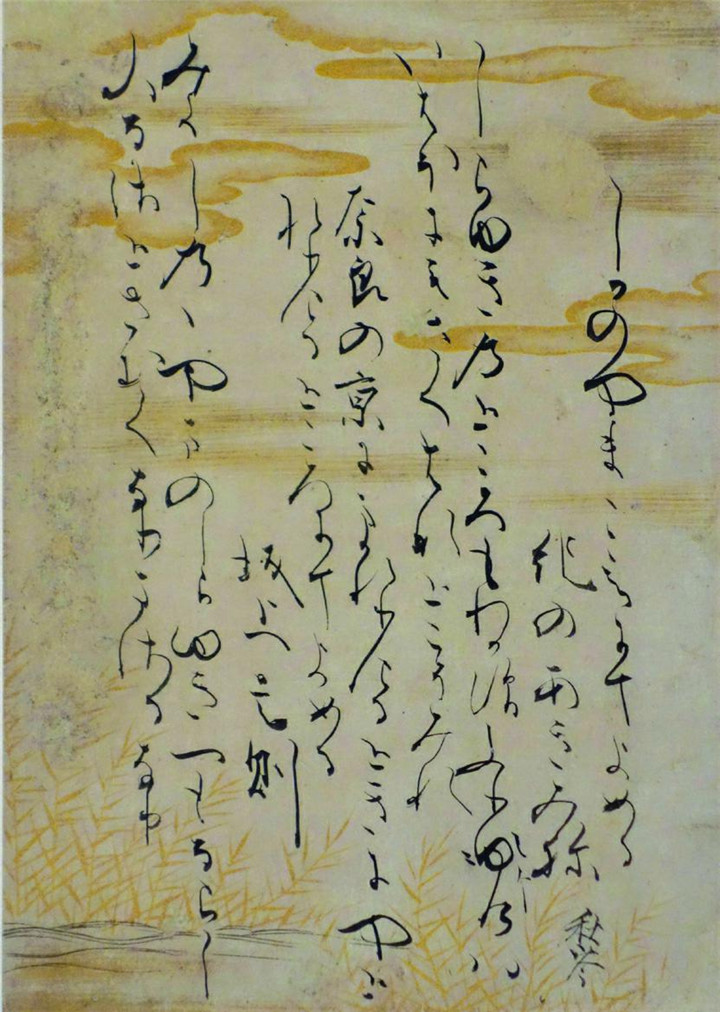 しかのやまこえにてよめる
紀のあきみね 秋岑
しらゆきのところもわかすふりしけは
いはほにもさくはなとこそみれ
奈良の京にまかれりけるときにやと
れりけるところにてよめる
坂上是則
みよしのゝやまのしらゆきつもるらし
ふるさとさむくなりまさるなり